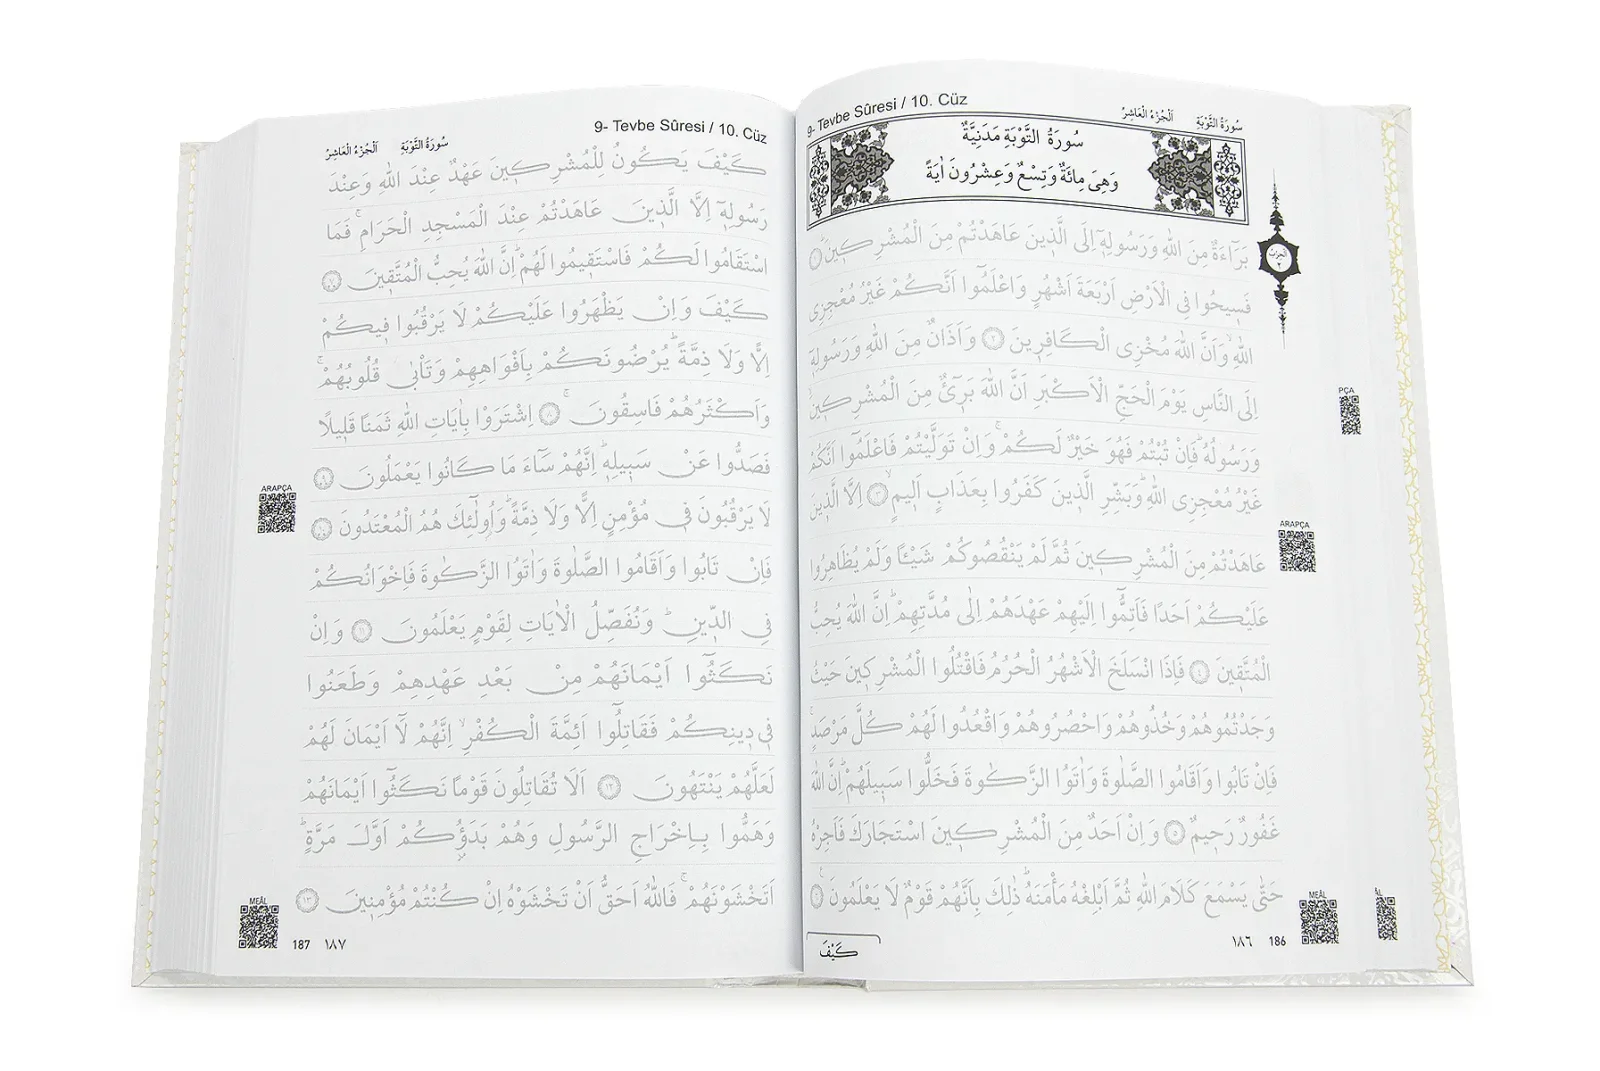 9- Tevbe Sûresi / 10. Cüz
اَلْجُزْءُ الْعَاشِرُ
سُورَةُ التَّوْبَةِ
سُورَةُ التَّوْبَةِ مَدَنِيَّةٌ
وَهِىَ مِائَةٌ وَتِسْعٌ وَعِشْرُونَ اٰيَةً
اَلْحِزْبُ
٢
بَرَٓاءَةٌ مِنَ اللّٰهِ وَرَسُولِهٖٓ اِلَى الَّذٖينَ عَاهَدْتُمْ مِنَ الْمُشْرِكٖينَؕ ١
فَسٖيحُوا فِى الْاَرْضِ اَرْبَعَةَ اَشْهُرٍ وَاعْلَمُٓوا اَنَّكُمْ غَيْرُ مُعْجِزِى
اللّٰهِۙ وَاَنَّ اللّٰهَ مُخْزِى الْكَافِرٖينَ ٢ وَاَذَانٌ مِنَ اللّٰهِ وَرَسُولِهٖٓ
اِلَى النَّاسِ يَوْمَ الْحَجِّ الْاَكْبَرِ اَنَّ اللّٰهَ بَرٖٓئٌ مِنَ الْمُشْرِكٖينَۙ
وَرَسُولُهُؕ فَاِنْ تُبْتُمْ فَهُوَ خَيْرٌ لَكُمْۚ وَاِنْ تَوَلَّيْتُمْ فَاعْلَمُٓوا اَنَّكُمْ
غَيْرُ مُعْجِزِى اللّٰهِؕ وَبَشِّرِ الَّذٖينَ كَفَرُوا بِعَذَابٍ اَلٖيمٍۙ ٣ اِلَّا الَّذٖينَ
عَاهَدْتُمْ مِنَ الْمُشْرِكٖينَ ثُمَّ لَمْ يَنْقُصُوكُمْ شَيْـًٔا وَلَمْ يُظَاهِرُوا
عَلَيْكُمْ اَحَدًا فَاَتِمُّٓوا اِلَيْهِمْ عَهْدَهُمْ اِلٰى مُدَّتِهِمْؕ اِنَّ اللّٰهَ يُحِبُّ
الْمُتَّقٖينَ ٤ فَاِذَا انْسَلَخَ الْاَشْهُرُ الْحُرُمُ فَاقْتُلُوا الْمُشْرِكٖينَ حَيْثُ
وَجَدْتُمُوهُمْ وَخُذُوهُمْ وَاحْصُرُوهُمْ وَاقْعُدُوا لَهُمْ كُلَّ مَرْصَدٍۚ
فَاِنْ تَابُوا وَاَقَامُوا الصَّلٰوةَ وَاٰتَوُا الزَّكٰوةَ فَخَلُّوا سَبٖيلَهُمْؕ اِنَّ اللّٰهَ
غَفُورٌ رَحٖيمٌ ٥ وَاِنْ اَحَدٌ مِنَ الْمُشْرِكٖينَ اسْتَجَارَكَ فَاَجِرْهُ
حَتّٰى يَسْمَعَ كَلَامَ اللّٰهِ ثُمَّ اَبْلِغْهُ مَأْمَنَهُؕ ذٰلِكَ بِاَنَّهُمْ قَوْمٌ لَا يَعْلَمُونَ ٦
PÇA
ARAPÇA
MEÂL
١٨٦ 186
كَيْفَ
9- Tevbe Sûresi / 10. Cüz
سُورَةُ التَّوْبَةِ
اَلْجُزْءُ الْعَاشِرُ
كَيْفَ يَكُونُ لِلْمُشْرِكٖينَ عَهْدٌ عِنْدَ اللّٰهِ وَعِنْدَ
رَسُولِهٖٓ اِلَّا الَّذٖينَ عَاهَدْتُمْ عِنْدَ الْمَسْجِدِ الْحَرَامِۚ فَمَا
اسْتَقَامُوا لَكُمْ فَاسْتَقٖيمُوا لَهُمْؕ اِنَّ اللّٰهَ يُحِبُّ الْمُتَّقٖينَ ٧
كَيْفَ وَاِنْ يَظْهَرُوا عَلَيْكُمْ لَا يَرْقُبُوا فٖيكُمْ
اِلًّا وَلَا ذِمَّةًؕ يُرْضُونَكُمْ بِاَفْوَاهِهِمْ وَتَأْبٰى قُلُوبُهُمْۚ
وَاَكْثَرُهُمْ فَاسِقُونَۚ ٨ اِشْتَرَوْا بِاٰيَاتِ اللّٰهِ ثَمَنًا قَلٖيلًا
فَصَدُّوا عَنْ سَبٖيلِهٖؕ اِنَّهُمْ سَٓاءَ مَا كَانُوا يَعْمَلُونَ ٩
لَا يَرْقُبُونَ فٖى مُؤْمِنٍ اِلًّا وَلَا ذِمَّةًؕ وَاُو۬لٰٓئِكَ هُمُ الْمُعْتَدُونَ ١٠
فَاِنْ تَابُوا وَاَقَامُوا الصَّلٰوةَ وَاٰتَوُا الزَّكٰوةَ فَاِخْوَانُكُمْ
فِى الدّٖينِؕ وَنُفَصِّلُ الْاٰيَاتِ لِقَوْمٍ يَعْلَمُونَ ١١ وَاِنْ
نَكَثُٓوا اَيْمَانَهُمْ مِنْ بَعْدِ عَهْدِهِمْ وَطَعَنُوا
فٖى دٖينِكُمْ فَقَاتِلُٓوا اَئِمَّةَ الْكُفْرِۙ اِنَّهُمْ لَٓا اَيْمَانَ لَهُمْ
لَعَلَّهُمْ يَنْتَهُونَ ١٢ اَلَا تُقَاتِلُونَ قَوْمًا نَكَثُٓوا اَيْمَانَهُمْ
وَهَمُّوا بِاِخْرَاجِ الرَّسُولِ وَهُمْ بَدَؤُ۫كُمْ اَوَّلَ مَرَّةٍؕ
اَتَخْشَوْنَهُمْۚ فَاللّٰهُ اَحَقُّ اَنْ تَخْشَوْهُ اِنْ كُنْتُمْ مُؤْمِنٖينَ ١٣
ARAPÇA
MEÂL
187 ١٨٧